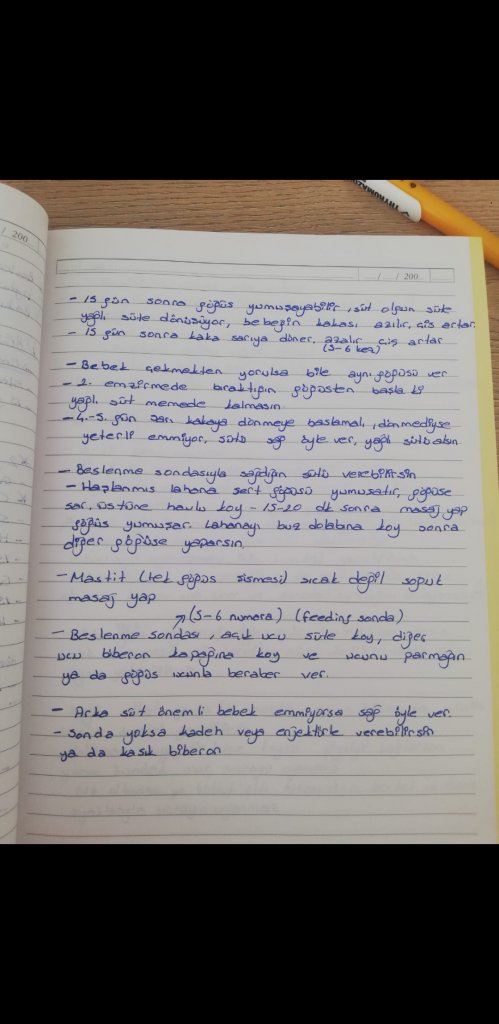 / 200
/ / 200
- 15 gün sonra göğüs yumuşayabilir, süt olgun süte
yağlı süte dönüşüyor, bebeğin kakası azalır, çiş artar.
- 15 gün sonra kaka sarıya döner, azalır çiş artar
(5-6 kez)
- Bebek çekmekten yorulsa bile aynı göğüsü ver
- 2. emzirmede bıraktığın göğüsten başla ki
yağlı süt memede kalmasın.
- 4.-5. gün sarı kakaya dönmeye başlamalı, dönmediyse
yeterli emmiyor, sütü sağ öyle ver, yağlı sütü alsın
- Beslenme sondasıyla sağdığın sütü verebilirsin
- Haşlanmış lahana sert göğüsü yumuşatır, göğüse
sar, üstüne havlu koy - 15-20 dk sonra masaj yap
göğüs yumuşar. Lahanayı buz dolabına koy sonra
diğer göğüse yaparsın.
- Mastit (tek göğüs şişmesi) sıcak değil soğuk
masaj yap
(5-6 numara) (feeding sonda)
- Beslenme sondası, açık ucu süte koy, diğer
ucu biberon kapağına koy ve ucunu parmağın
ya da göğüs ucunla beraber ver.
- Arka süt önemli bebek emmiyorsa sağ öyle ver.
- Sonda yoksa kadeh veya enjektörle verebilirsin
ya da kaşık biberon